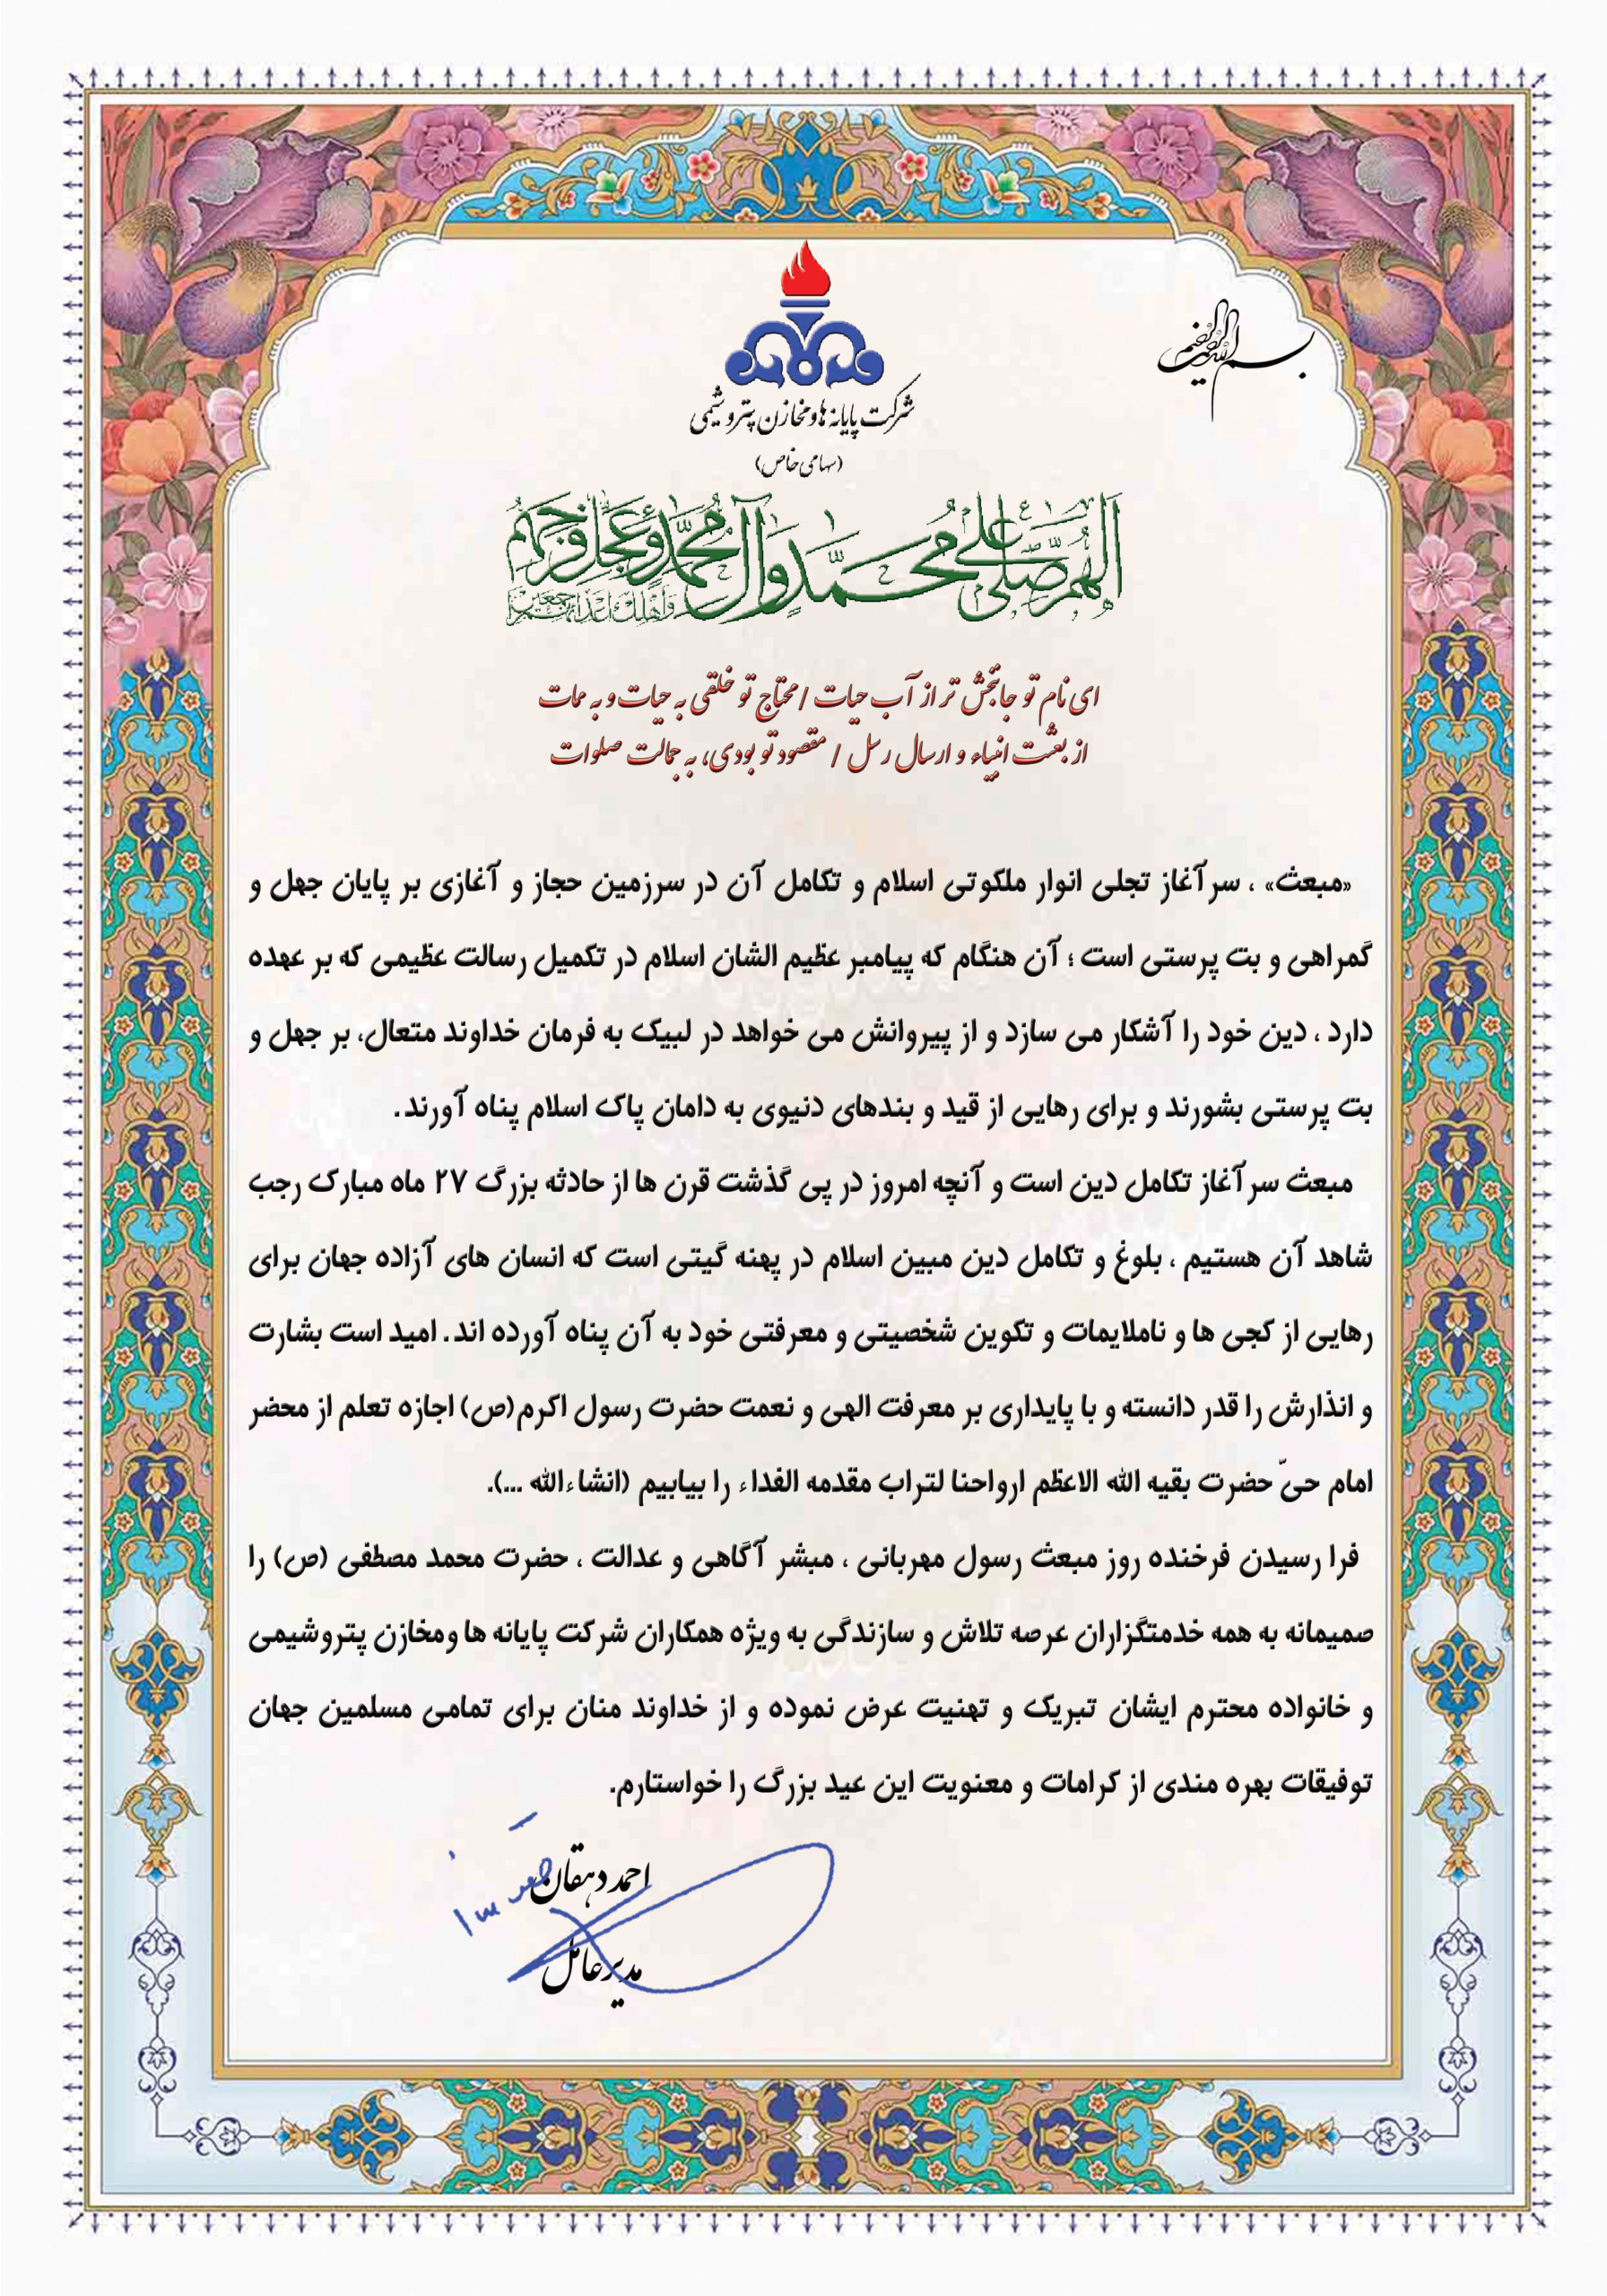 بسم الله الرحمن الرحیم
شرکت پایانه ها و مخازن پتروشیمی
(سهامی خاص)
اللهم صل علی محمد و آل محمد و عجل فرجهم
ای نام تو جانبخش تر از آب حیات / محتاج تو خلقی به حیات و به ممات
از بعثت انبیاء و ارسال رسل / مقصود تو بودی، به جمالت صلوات
«مبعث» ، سر آغاز تجلی انوار ملکوتی اسلام و تکامل آن در سرزمین حجاز و آغازی بر پایان جهل و
گمراهی و بت پرستی است ؛ آن هنگام که پیامبر عظیم الشان اسلام در تکمیل رسالت عظیمی که بر عهده
دارد ، دین خود را آشکار می سازد و از پیروانش می خواهد در لبیک به فرمان خداوند متعال، بر جهل و
بت پرستی بشورند و برای رهایی از قید و بندهای دنیوی به دامان پاک اسلام پناه آورند.
مبعث سر آغاز تکامل دین است و آنچه امروز در پی گذشت قرن ها از حادثه بزرگ ۲۷ ماه مبارک رجب
شاهد آن هستیم ، بلوغ و تکامل دین مبین اسلام در پهنه گیتی است که انسان های آزاده جهان برای
رهایی از کجی ها و ناملایمات و تکوین شخصیتی و معرفتی خود به آن پناه آورده اند. امید است بشارت
و انذارش را قدر دانسته و با پایداری بر معرفت الهی و نعمت حضرت رسول اکرم(ص) اجازه تعلم از محضر
امام حیّ حضرت بقیه الله الاعظم ارواحنا لتراب مقدمه الفداء را بیابیم (انشاءالله ...).
فرا رسیدن فرخنده روز مبعث رسول مهربانی ، مبشر آگاهی و عدالت ، حضرت محمد مصطفی (ص) را
صمیمانه به همه خدمتگزاران عرصه تلاش و سازندگی به ویژه همکاران شرکت پایانه ها ومخازن پتروشیمی
و خانواده محترم ایشان تبریک و تهنیت عرض نموده و از خداوند منان برای تمامی مسلمین جهان
توفیقات بهره مندی از کرامات و معنویت این عید بزرگ را خواستارم.
احمد دهقان
مدیر عامل